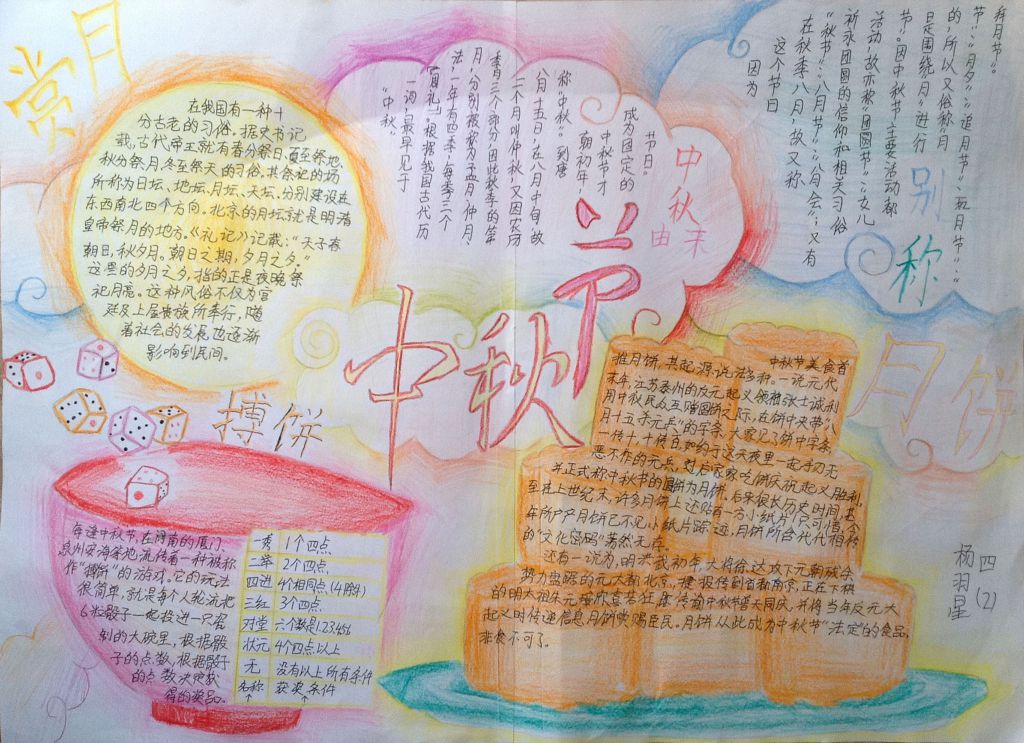 赏月
在我国有一种十
分古老的习俗。据史书记
载,古代帝王就有春分祭日、夏至祭地、
秋分祭月、冬至祭天的习俗。其祭祀的场
所称为日坛、地坛、月坛、天坛。分别建设在
东西南北四个方向。北京的月坛就是明清
皇帝祭月的地方。《礼记》记载:“天子春
朝日,秋夕月。朝日之期,夕月之夕。”
这里的夕月之夕,指的正是夜晚祭
祀月亮。这种风俗不仅为宫
廷及上层贵族所奉行,随
着社会的发展也逐渐
影响到民间。
中秋由来
“中秋”
一词,最早见于
《周礼》。根据我国古代历
法,一年有四季,每季三个
月,分别被称为孟月、仲月、
季月三个部分,因此秋季的第
二个月叫仲秋,又因农历
八月十五日,在八月中旬,故
称“中秋”。到唐
朝初年,
中秋节才
成为固定的
节日。
别称
因为
这个节日
在秋季八月,故又称
“秋节”、“八月节”、“八月会”;又有
祈求团圆的信仰和相关习俗
活动,故亦称“团圆节”、“女儿
节”。因中秋节主要活动都
是围绕“月”进行
的,所以又俗称“月
节”、“月夕”、“追月节”、“玩月节”、
拜月节”。
中秋节
月饼
中秋节美食首
推月饼,其起源说法多种。一说元代
末年,江苏泰州的反元起义领袖张士诚利
月中秋民众互赠圆饼之际,在饼中夹带“八
月十五杀元兵”的字条,大家见了饼中字条,
一传十,十传百,如约于这天夜里一起手刃无
恶不作的元兵,过后家家吃饼庆祝起义胜利,
并正式称中秋节的圆饼为月饼。后来很长历史时间,甚
至在上世纪末,许多月饼上还贴有一方小纸片!只可惜,今
年所产月饼已不见小纸片踪迹,月饼所含代代相传
的“文化密码”荡然无存。
还有一说为,明洪武初年,大将徐达攻下元朝残余
努力盘踞的元大都北京,捷报传到首都南京,正在下棋
的明太祖朱元璋欣喜若狂,即传谕中秋节普天同庆,并将当年反元大
起义时传递信息月饼赏赐臣民。月饼从此成为中秋节“法定”的食品,
非食不可了。
搏饼
每逢中秋节,在闽南的厦门、
泉州安海等地流传着一种被称
作“搏饼”的游戏。它的玩法
很简单,就是每个人轮流把
6粒骰子一起投进一只瓷
制的大碗里,根据骰
子的点数,根据骰子
的点数决定获
得的奖品。
一秀 1个四点
二举 2个四点
四进 4个相同点(4除外)
三红 3个四点
对堂 六个数是1.2.3.4.5.6
状元 4个四点以上
无 没有以上所有条件
名称 获奖条件
四(2)
杨羽星